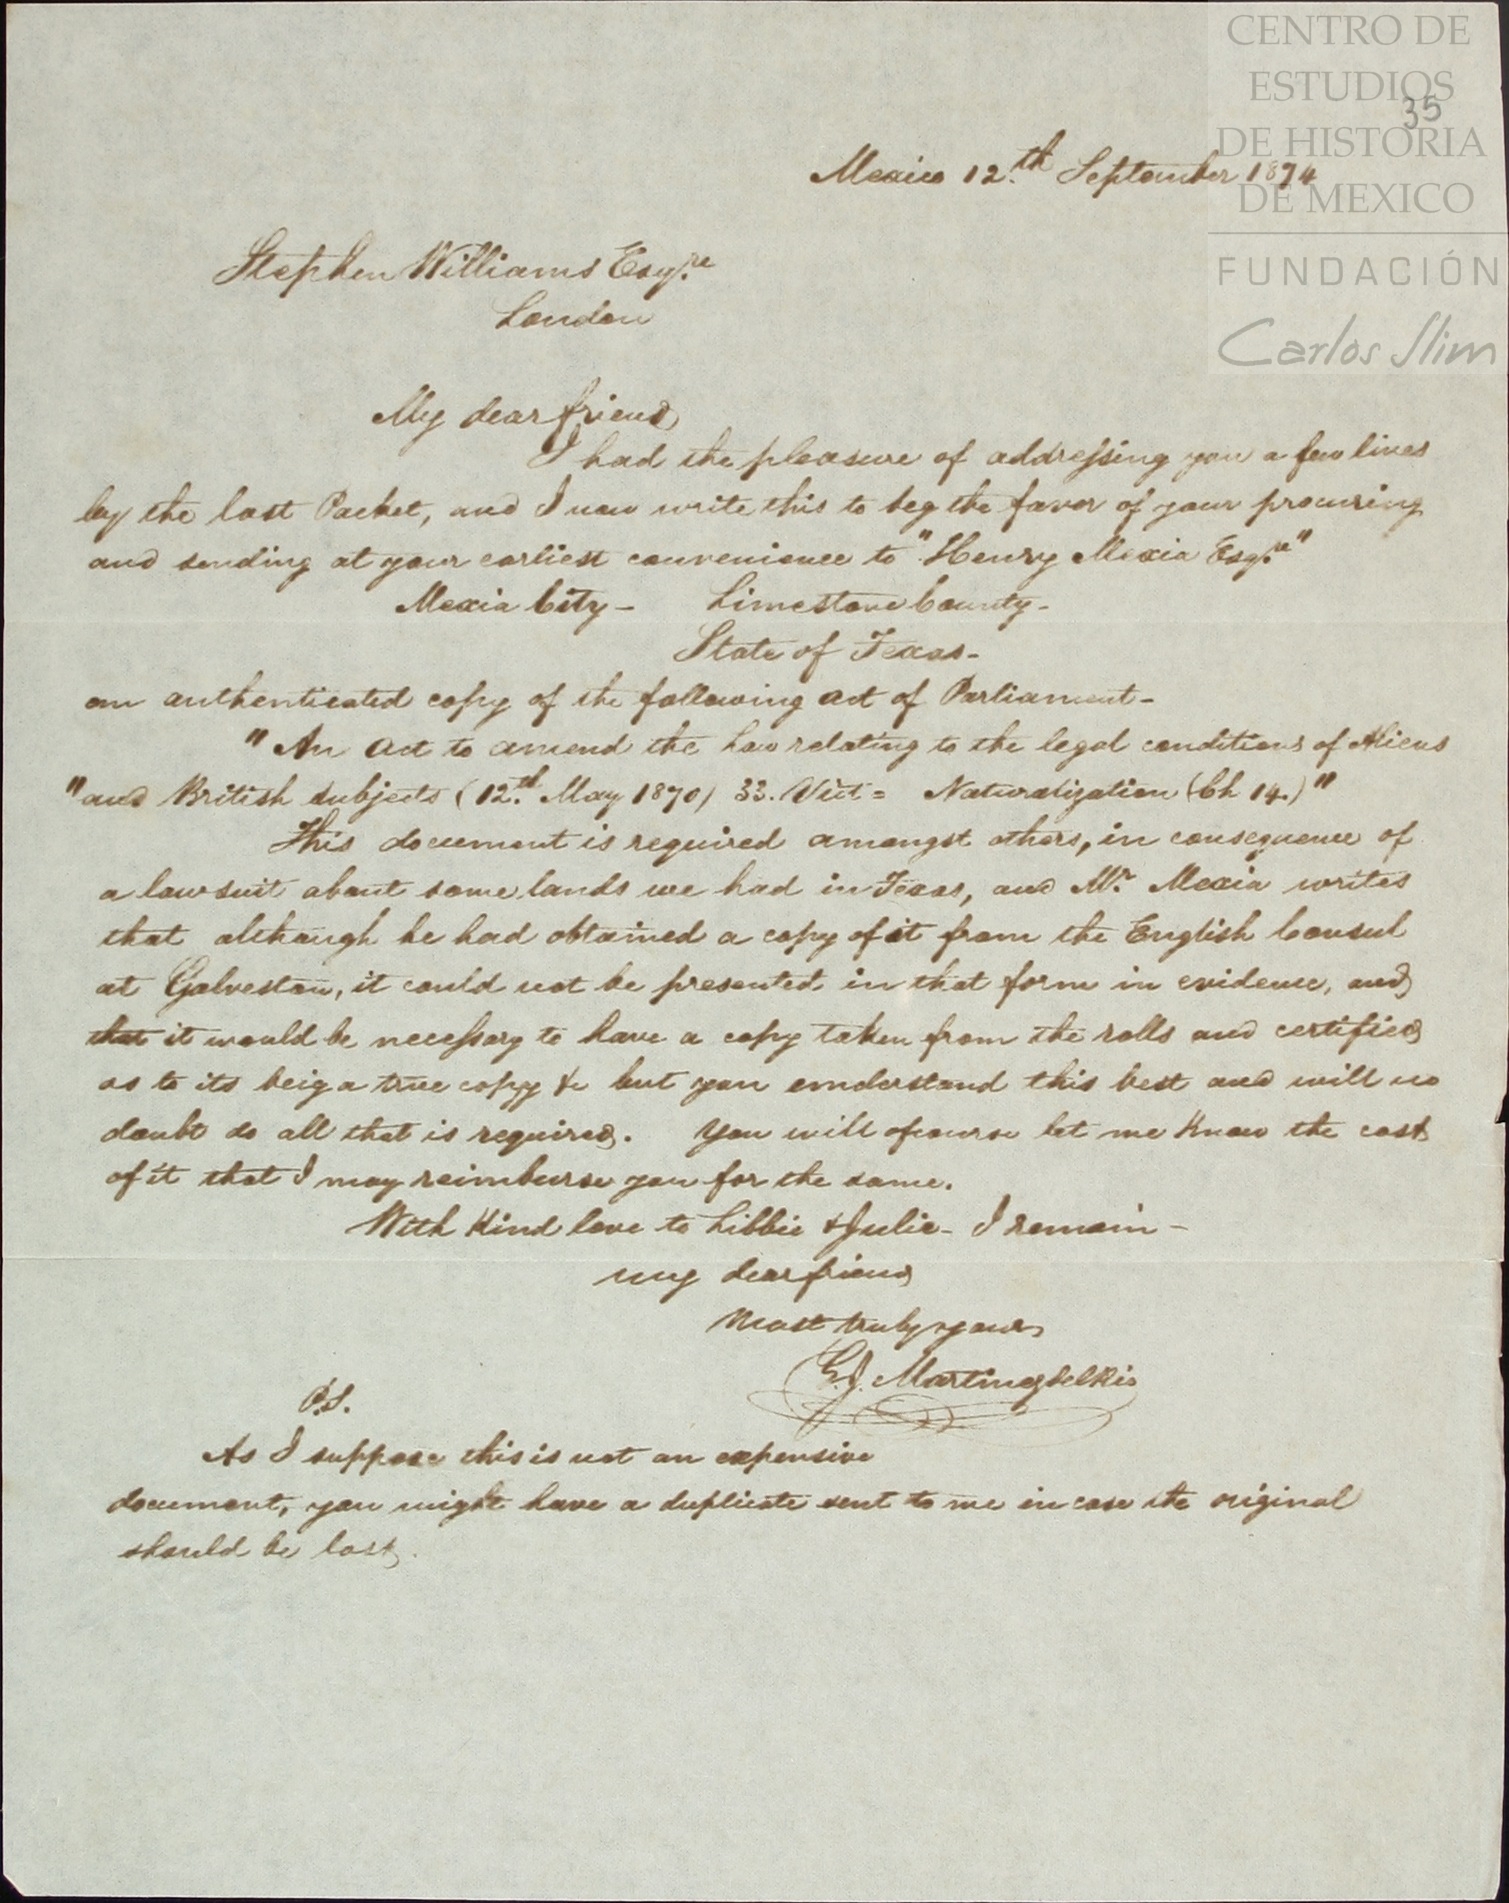 CENTRO DE
ESTUDIOS
DE HISTORIA
DE MEXICO
FUNDACIÓN
Carlos Slim
35
Mexico 12.th September 1874
Stephen Williams Esq.re
London
My dear friend,
I had the pleasure of addressing you a few lines
by the last Packet, and I now write this to beg the favor of your procuring
and sending at your earliest convenience to "Henry Mexia Esq.re"
Mexia City - Limestone County -
State of Texas -
an authenticated copy of the following act of Parliament -
"An Act to amend the Law relating to the legal conditions of Aliens
"and British subjects (12.th May 1870) 33. Vict = Naturalization (Ch 14.)"
This document is required amongst others, in consequence of
a lawsuit about some lands we had in Texas, and Mr. Mexia writes
that although he had obtained a copy of it from the English Consul
at Galveston, it could not be presented in that form in evidence, and
that it would be necessary to have a copy taken from the rolls and certified
as to its beig a true copy &c but you understand this best and will no
doubt do all that is required. You will of course let me know the cost
of it that I may reimburse you for the same.
With Kind love to Libbie & Julie - I remain -
my dear friend
Most truly yours
G. J. Martinez del Rio
P.S.
As I suppose this is not an expensive
document, you might have a duplicate sent to me in case the original
should be lost.